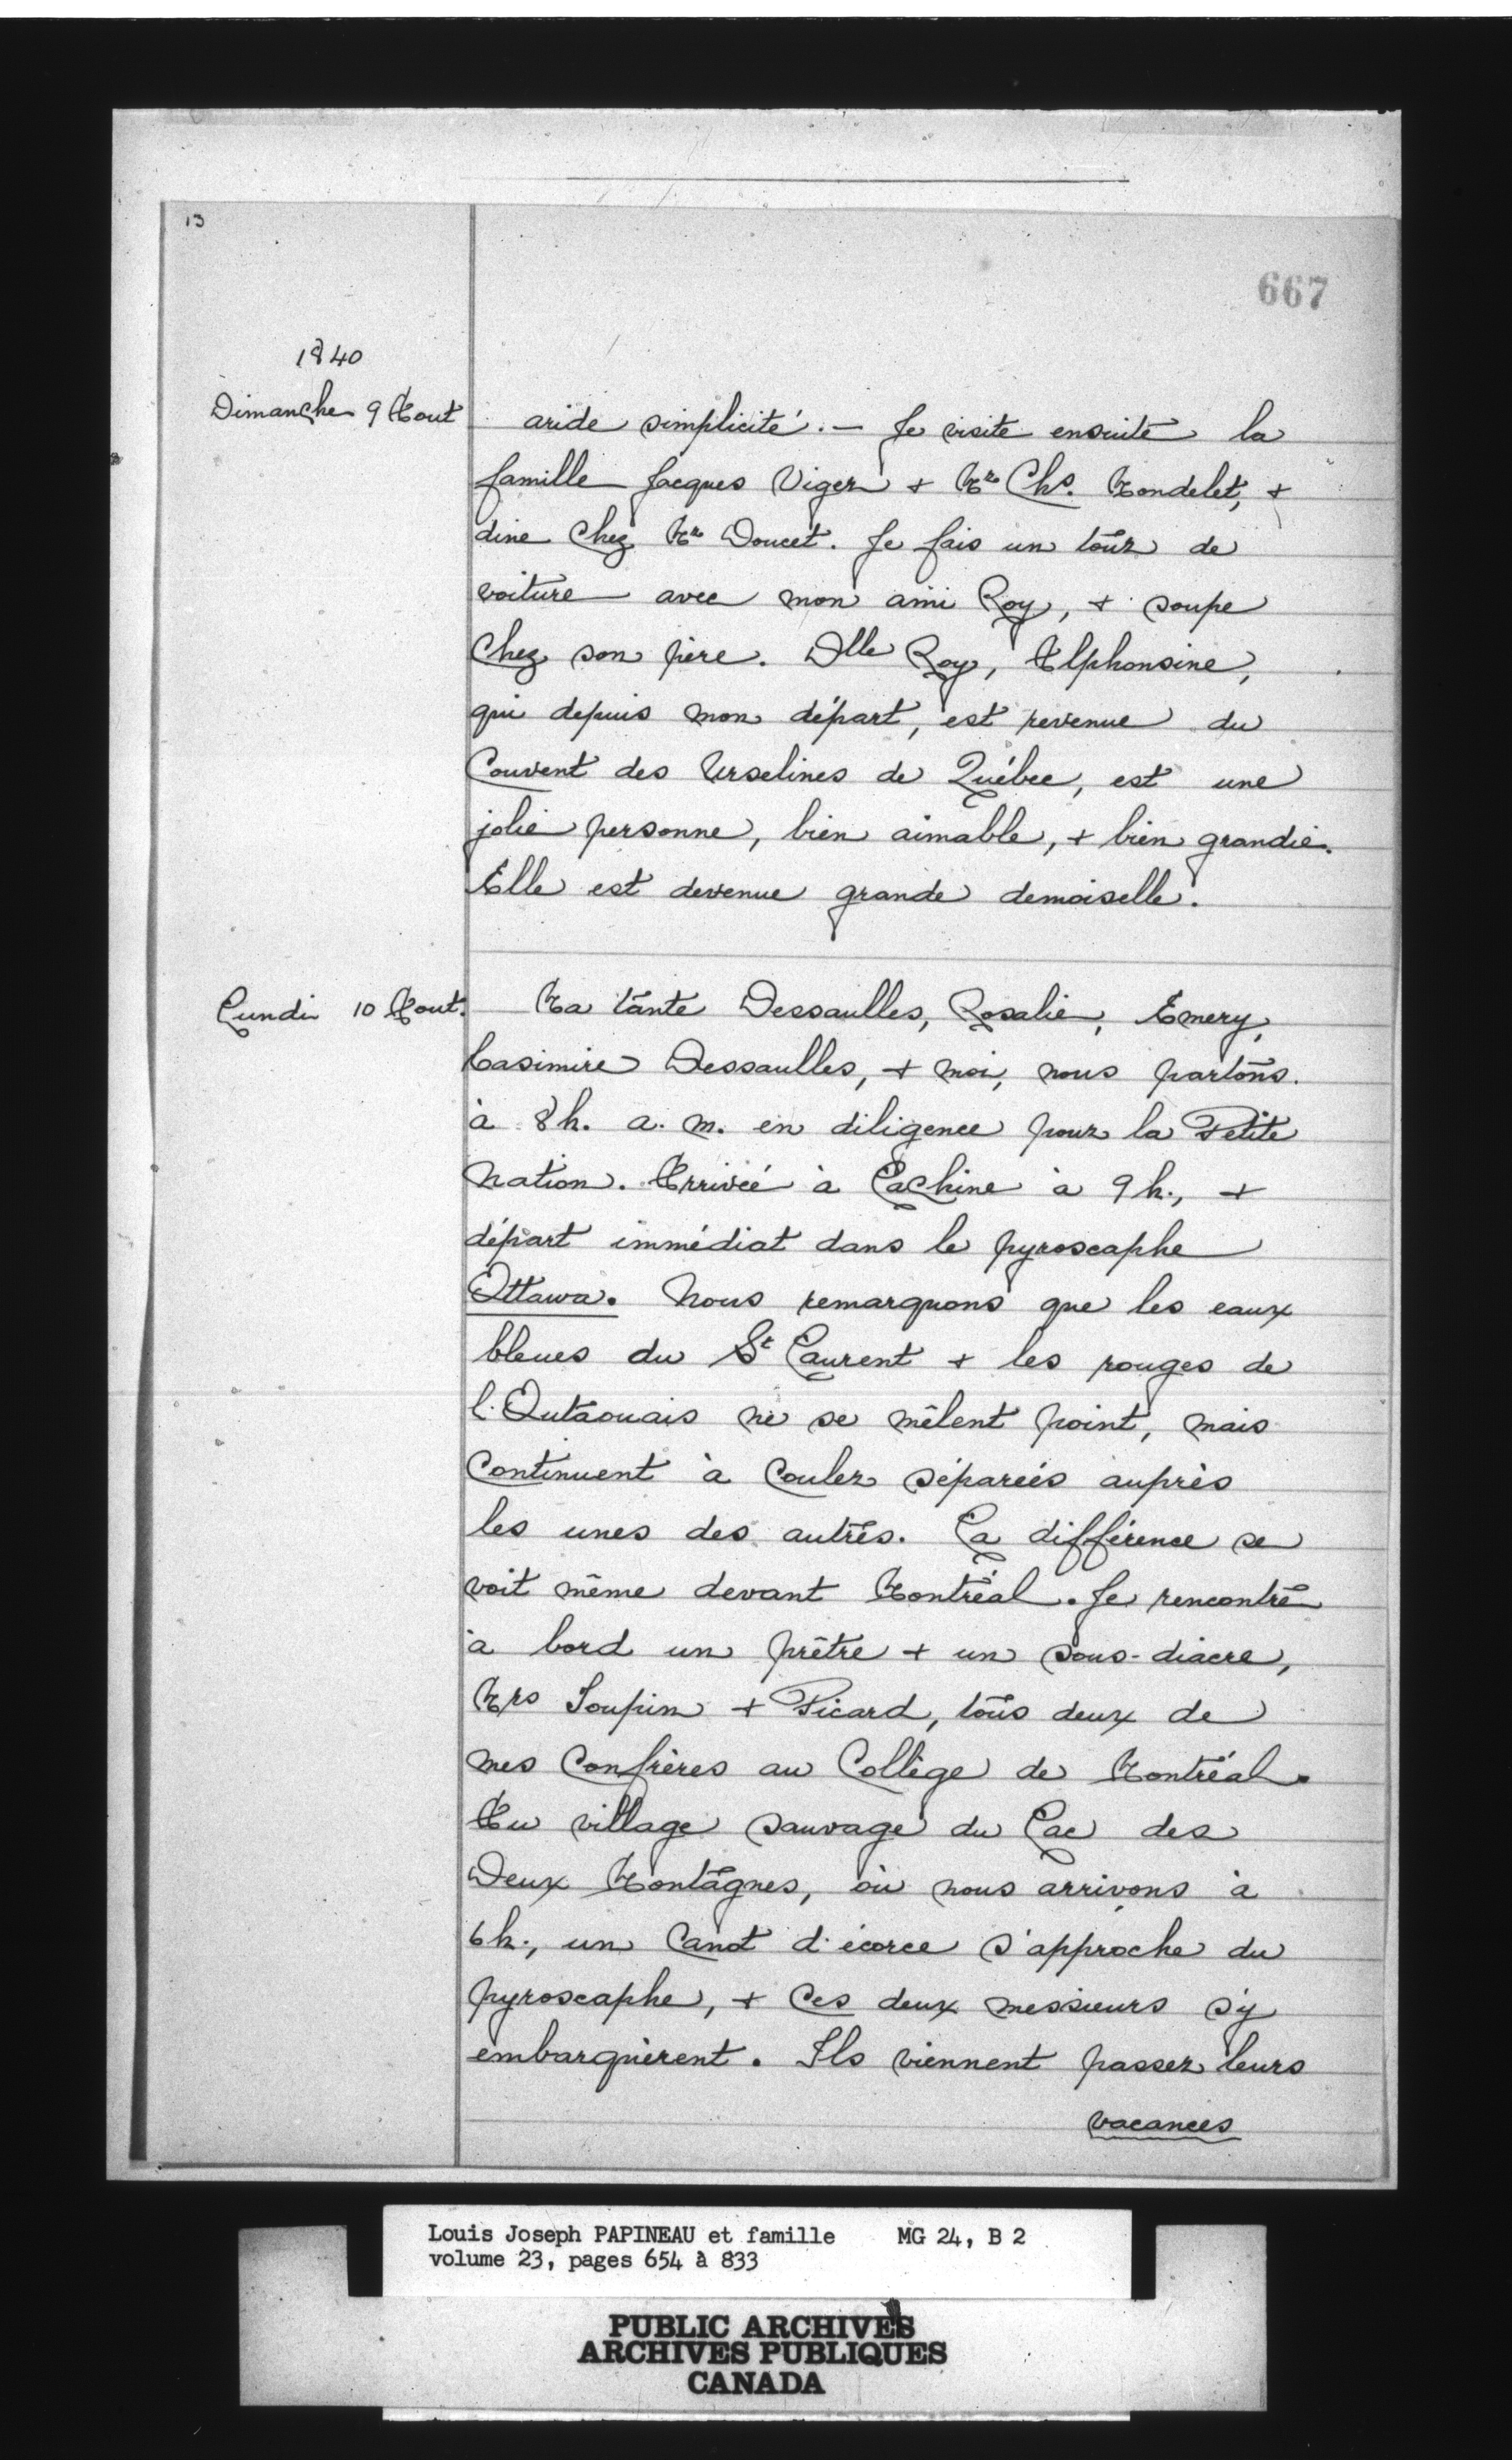 13
667
1840
Dimanche 9 Aout
aride simplicité. — Je visite ensuite la
famille Jacques Viger + Mr Chs. Mondelet, +
dine chez Mr Doucet. Je fais un tour de
voiture avec mon ami Roy, + soupe
chez son père. Dlle Roy, Alphonsine,
qui depuis mon départ, est revenue du
Couvent des Urselines de Québec, est une
jolie personne, bien aimable, + bien grandie.
Elle est devenue grande demoiselle.
Lundi 10 Aout.
Ma tante Dessaulles, Rosalie, Emery,
Casimire Dessaulles, + moi, nous partons.
à 8 h. a. m. en diligence pour la Petite
Nation. Arrivée à Lachine à 9 h., +
départ immédiat dans le pyroscaphe
Ottawa. Nous remarquons que les eaux
bleues du St Laurent + les rouges de
l'Outaouais ne se mêlent point, mais
continuent à couler séparées auprès
les unes des autres. La différence se
voit même devant Montréal. Je rencontre
à bord un prêtre + un sous-diacre,
Mrs Toupin + Picard, tous deux de
mes confrères au Collège de Montréal.
Au village sauvage du Lac des
Deux Montagnes, où nous arrivons à
6 h., un canot d'écorce s'approche du
pyroscaphe, + ces deux messieurs s'y
embarquèrent. Ils viennent passer leurs
vacances
Louis Joseph PAPINEAU et famille MG 24, B 2
volume 23, pages 654 à 833
PUBLIC ARCHIVES
ARCHIVES PUBLIQUES
CANADA